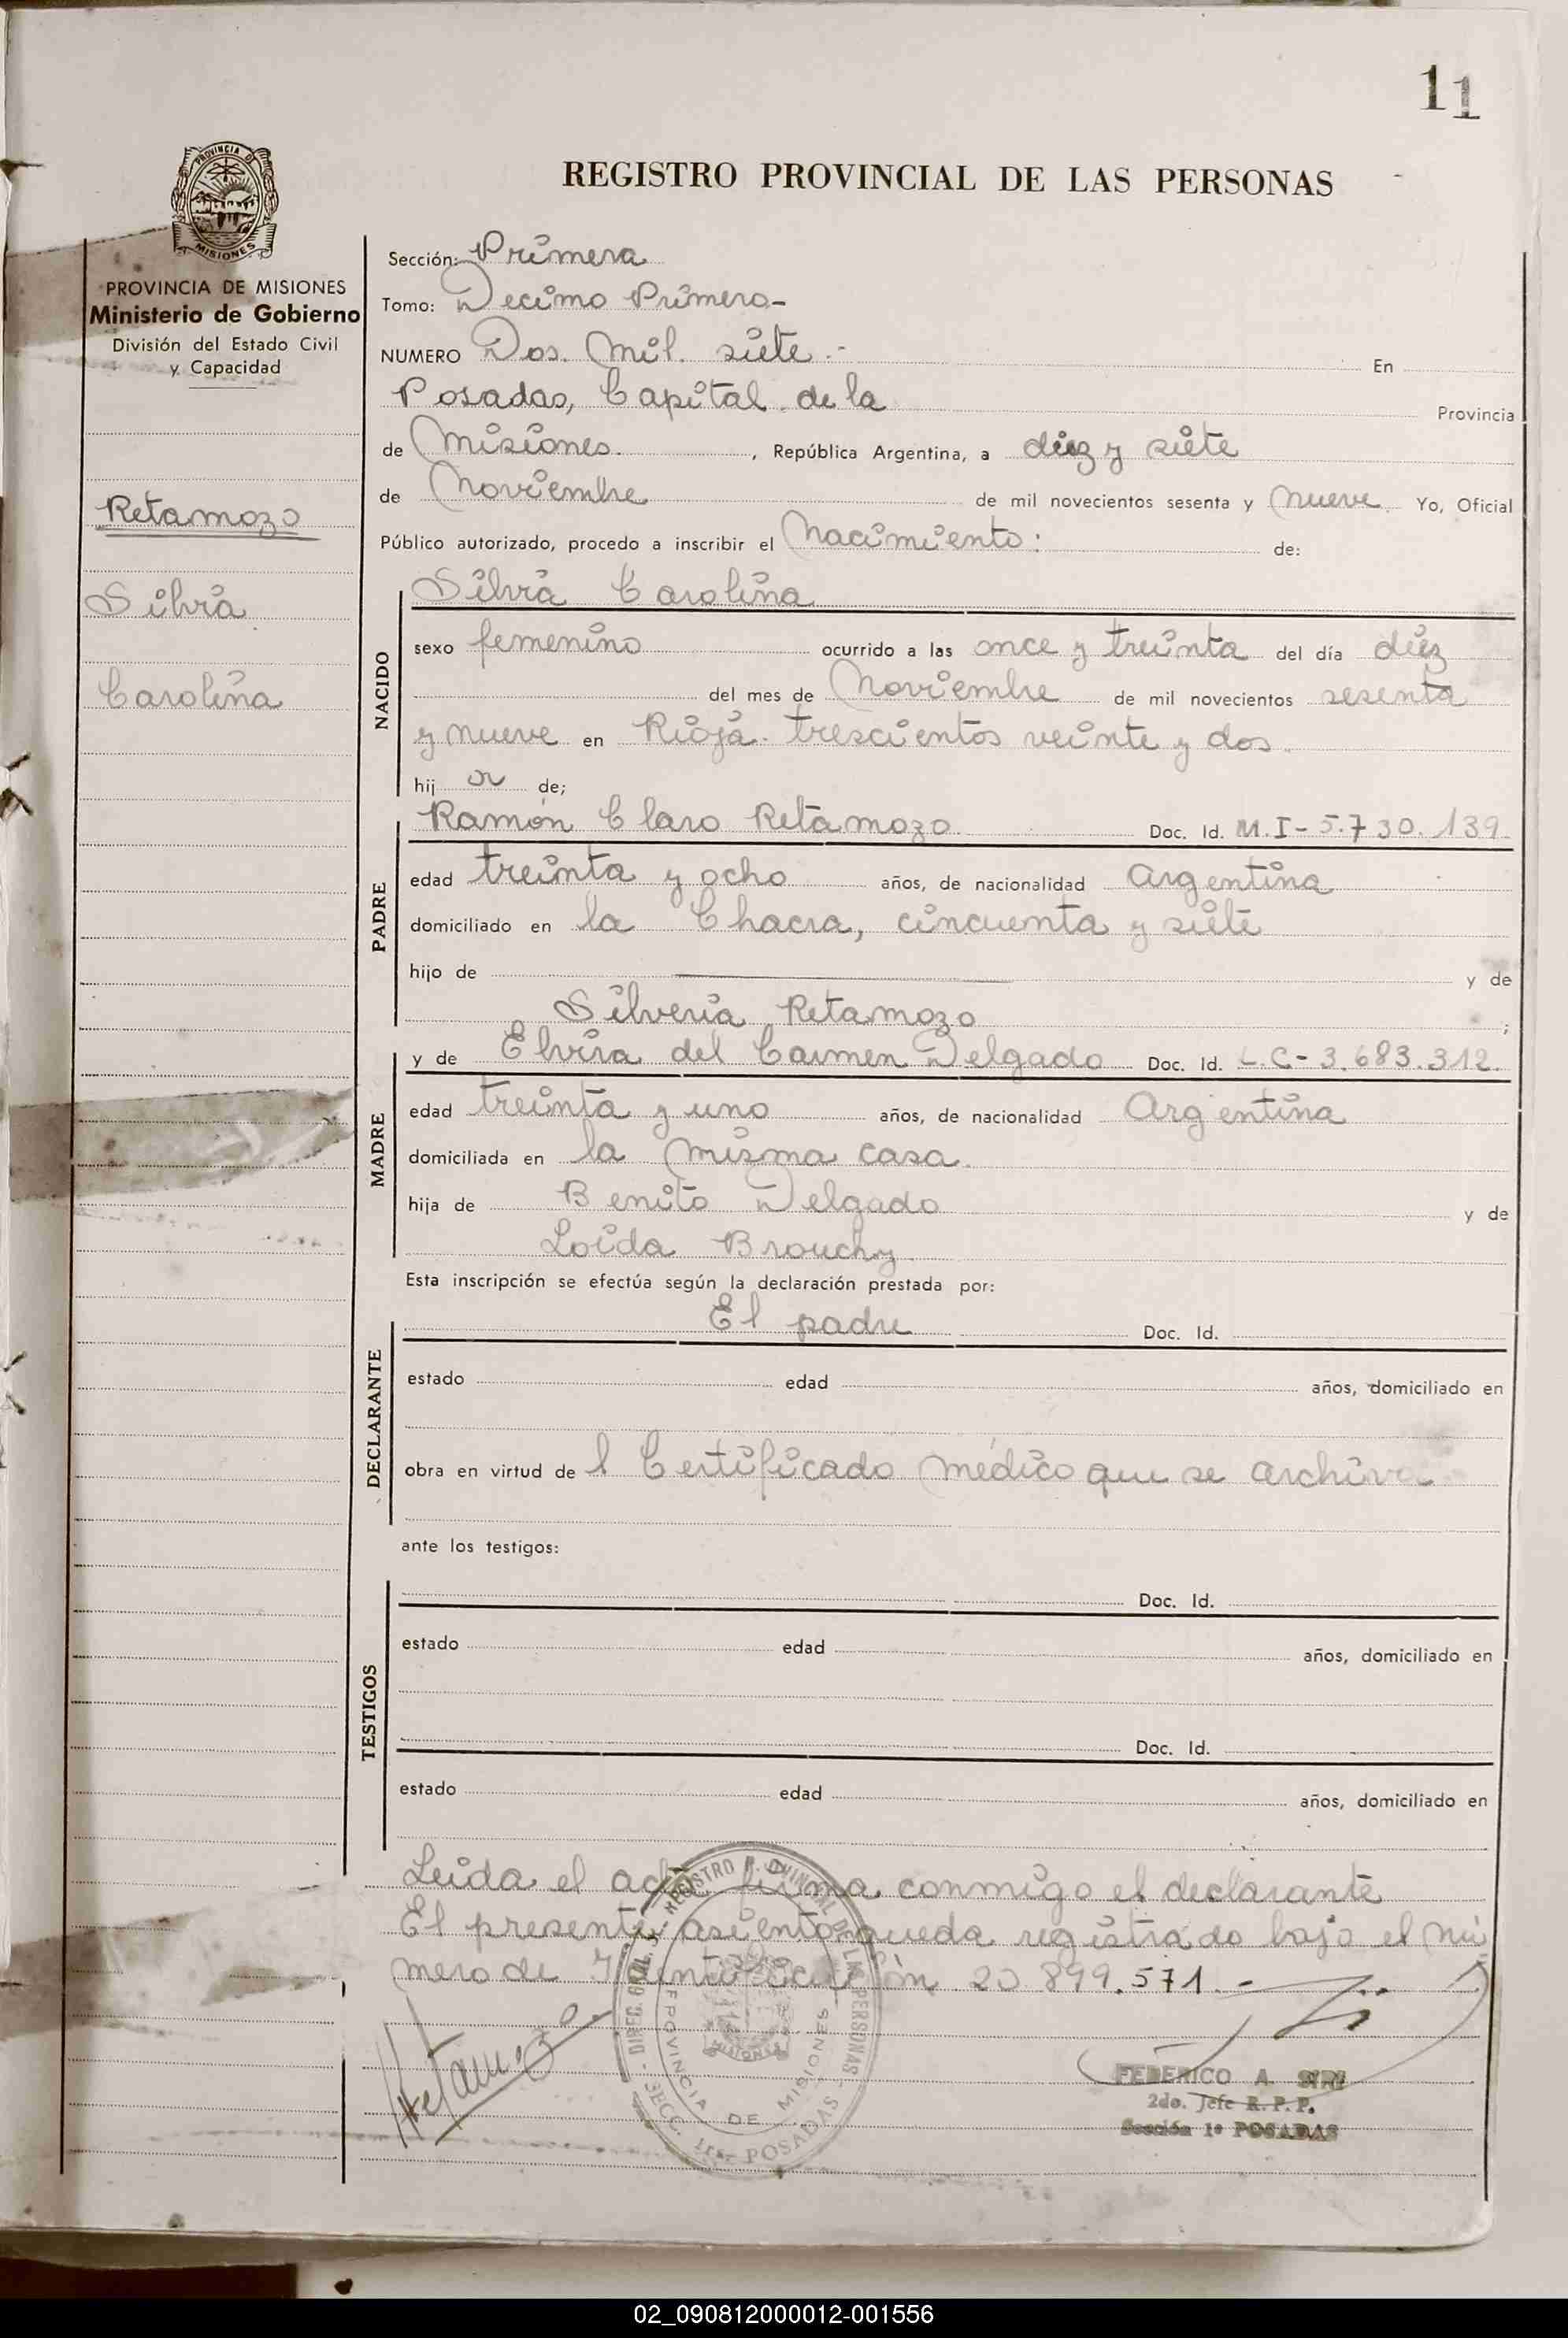 11
REGISTRO PROVINCIAL DE LAS PERSONAS
PROVINCIA DE MISIONES
Ministerio de Gobierno
División del Estado Civil
y Capacidad
Retamozo
Silvia
Carolina
Sección: Primera
Tomo: Decimo Primero-
NUMERO Dos. Mil. siete.- En
Posadas, Capital de la Provincia
de Misiones. , República Argentina, a diez y siete
de Noviembre de mil novecientos sesenta y nueve Yo, Oficial
Público autorizado, procedo a inscribir el Nacimiento: de:
NACIDO
Silvia Carolina
sexo femenino ocurrido a las once y treinta del día diez
del mes de Noviembre de mil novecientos sesenta
y nueve en Rioja. trescientos veinte y dos.
hij a de;
PADRE
Ramón Claro Retamozo Doc. Id. M.I-5.730.139.
edad treinta y ocho años, de nacionalidad Argentina
domiciliado en la Chacra, cincuenta y siete
hijo de y de
Silveria Retamozo ;
MADRE
y de Elvira del Carmen Delgado Doc. Id. L.C-3.683.312.
edad treinta y uno años, de nacionalidad Argentina
domiciliada en la misma casa.
hija de Benito Delgado y de
Loida Brouchy
Esta inscripción se efectúa según la declaración prestada por:
DECLARANTE
El padre Doc. Id.
estado edad años, domiciliado en
obra en virtud de l Certificado médico que se archiva
ante los testigos:
TESTIGOS
Doc. Id.
estado edad años, domiciliado en
Doc. Id.
estado edad años, domiciliado en
Leida el acta firma conmigo el declarante
El presente asiento queda registrado bajo el nú
mero de Identificación 20.899.571.-
Retamozo
DIREC. GRAL. REGISTRO PROVINCIAL DE LAS PERSONAS
PROVINCIA DE MISIONES
SECC. 1ra. POSADAS
FEDERICO A. SIRI
2do. Jefe R. P. P.
Sección 1ª POSADAS
02_090812000012-001556